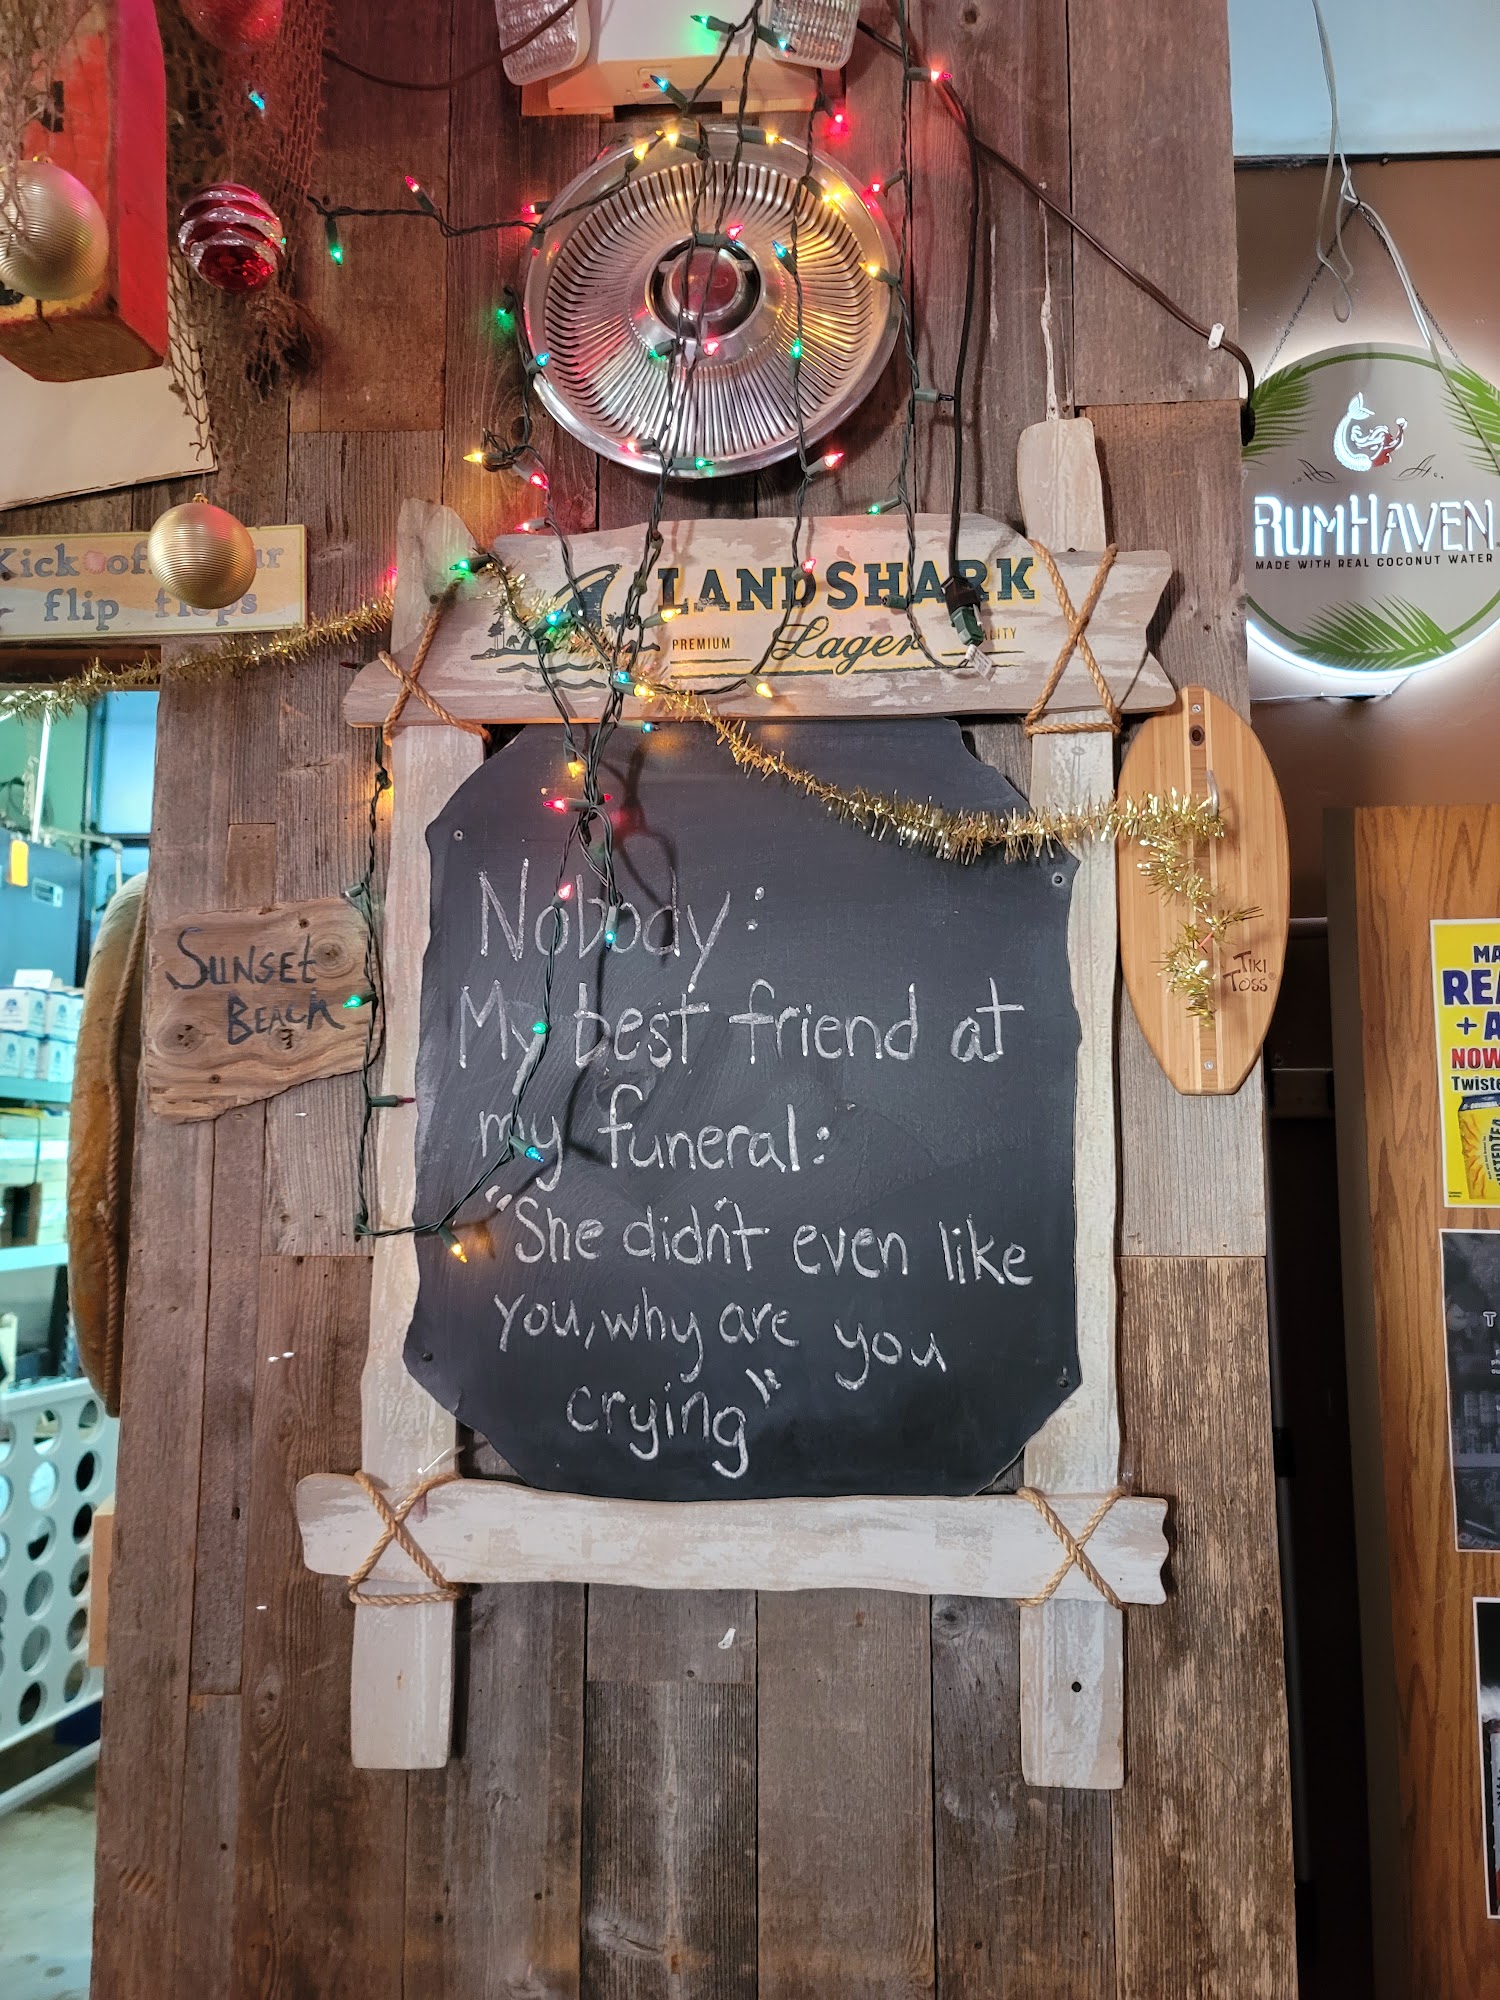 Kick off
flip flops
LANDSHARK
PREMIUM
Lager
RUMHAVEN
MADE WITH REAL COCONUT WATER
SUNSET
BEACH
TIKI
TOSS
Nobody:
My best friend at
my funeral:
"She didn't even like
you, why are you
crying"
NOW